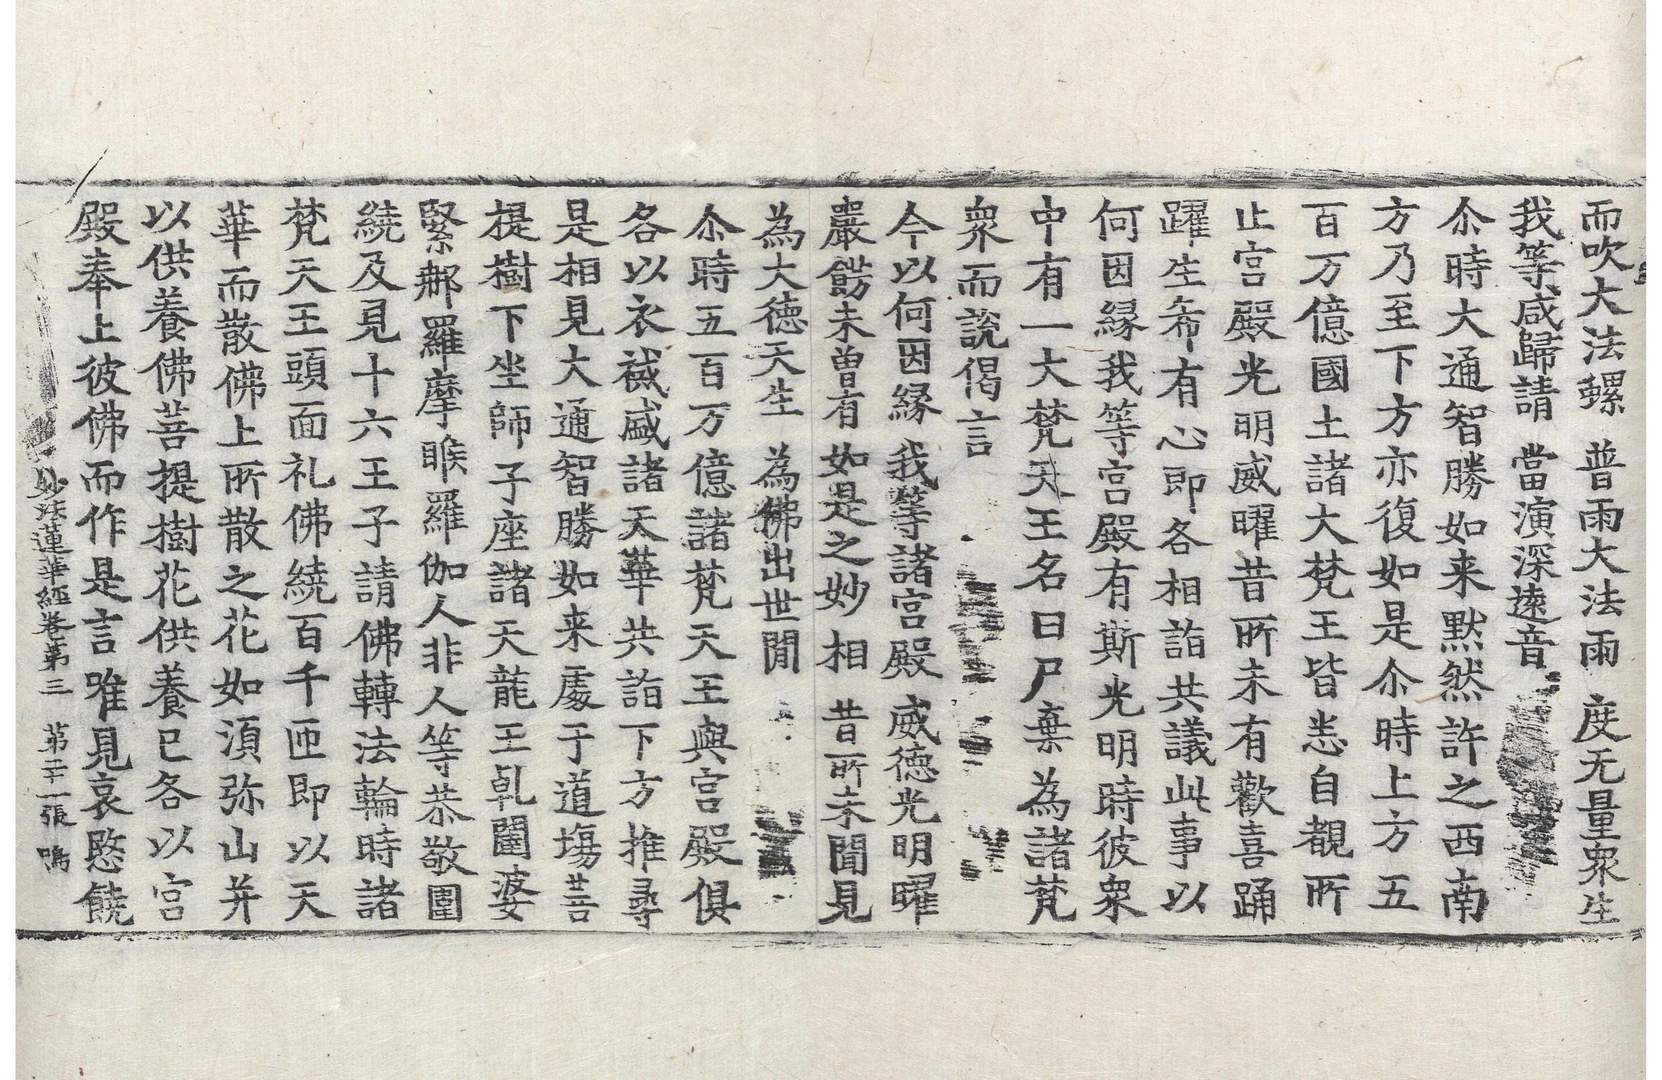 而吹大法螺　普雨大法雨　度无量衆生
我等咸歸請　當演深遠音
尒時大通智勝如来黙然許之西南
方乃至下方亦復如是尒時上方五
百万億國土諸大梵王皆悉自覩所
止宮殿光明威曜昔所未有歡喜踊
躍生希有心即各相詣共議此事以
何因縁我等宮殿有斯光明時彼衆
中有一大梵天王名曰尸棄為諸梵
衆而說偈言
今以何因縁　我等諸宮殿　威德光明曜
嚴餝未曽有　如是之妙相　昔所未聞見
為大德天生　為佛出世間
尒時五百万億諸梵天王與宮殿俱
各以衣祴盛諸天華共詣下方推尋
是相見大通智勝如来處于道塲菩
提樹下坐師子座諸天龍王乹闥婆
緊那羅摩睺羅伽人非人等恭敬圍
繞及見十六王子請佛轉法輪時諸
梵天王頭面礼佛繞百千匝即以天
華而散佛上所散之花如湏弥山并
以供養佛菩提樹花供養已各以宮
殿奉上彼佛而作是言唯見哀愍饒
妙法蓮華經卷第三　第二十一張　鳴